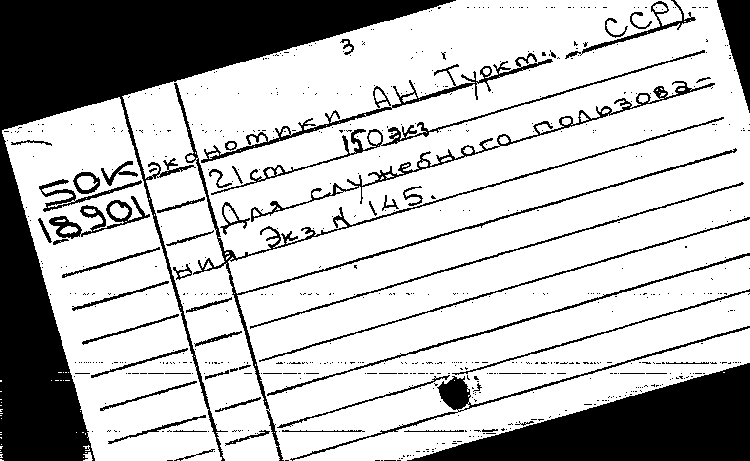 3
экономики АН Туркм. ССР).
50К 21 ст. 150 экз.
18901 Для служебного пользова-
ния. Экз. N 145.